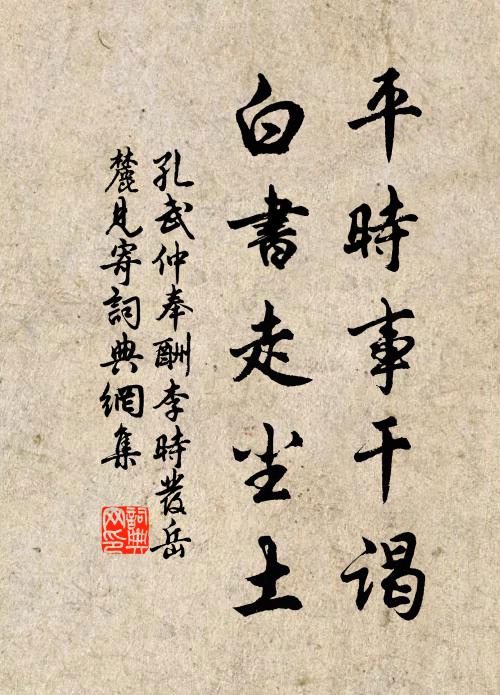 平時事干謁
白書走尘土
孔武仲奉酬李時發岳
麓見寄詞典網集
詞典
网印